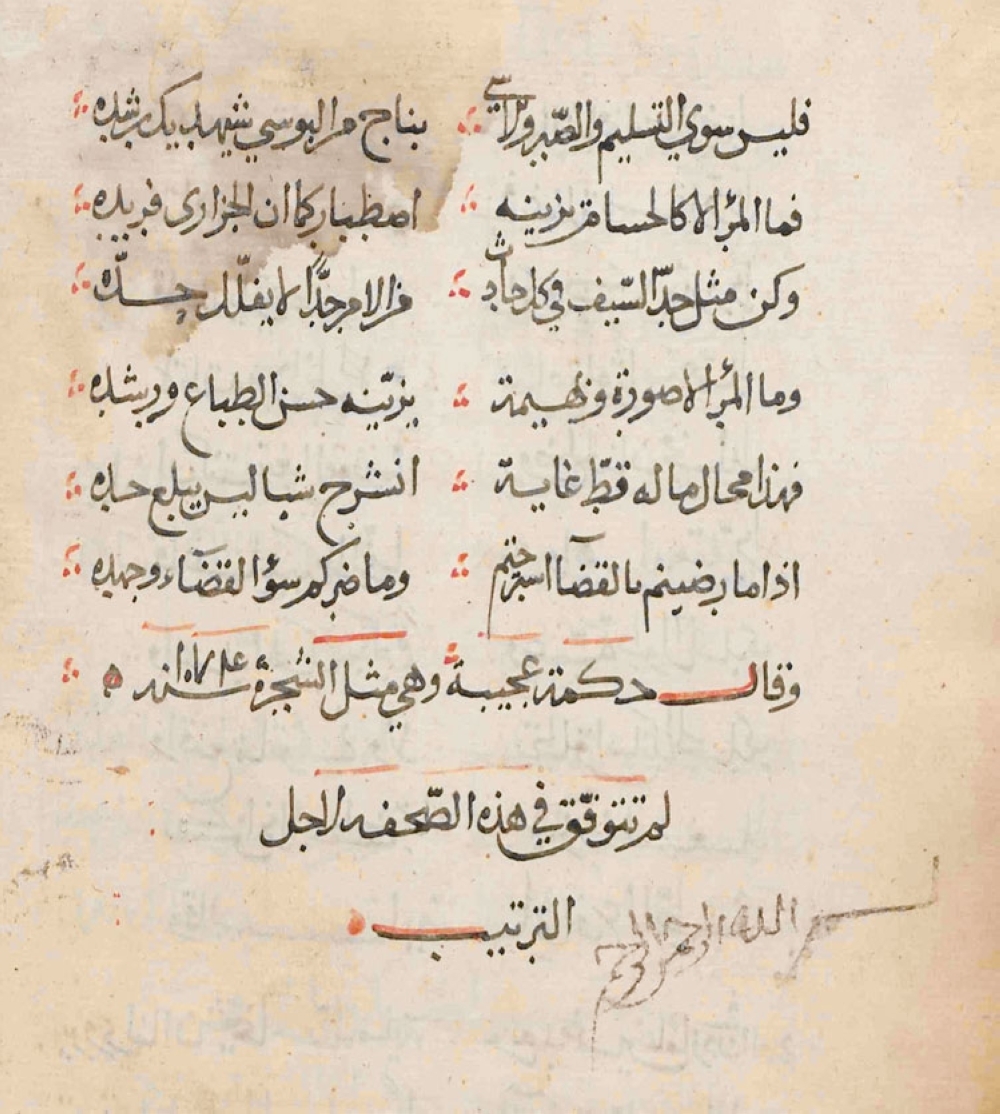 فليس سوي التسليم والصّبر والاسي ∴ بناج من البوسي شهيد يك رشده
فما المرؤ الا كالحسام يزينه ∴ اصطبار كما ان الجزاري فريده
وكن مثل حدّ السّيف في كل حادث ∴ من الامر جدًّا لا يفلّل حدّه
وما المرؤ الا صورة وبهيمة ∴ يزيّنه حسن الطباع ورشده
فهذا محال ما له قطّ غاية ∴ انشرح شبا ليس يبلع حده
اذا ما رضيتم بالقضآ استرحتم ∴ وما ضركم سؤ القضآء وجهده
وقال حكمة عجيبة وهي مثل الشجرة
لم تتوفّق في هذه الصّحفه لاجل
الترتيب
بسم الله الرحمن الرحيم